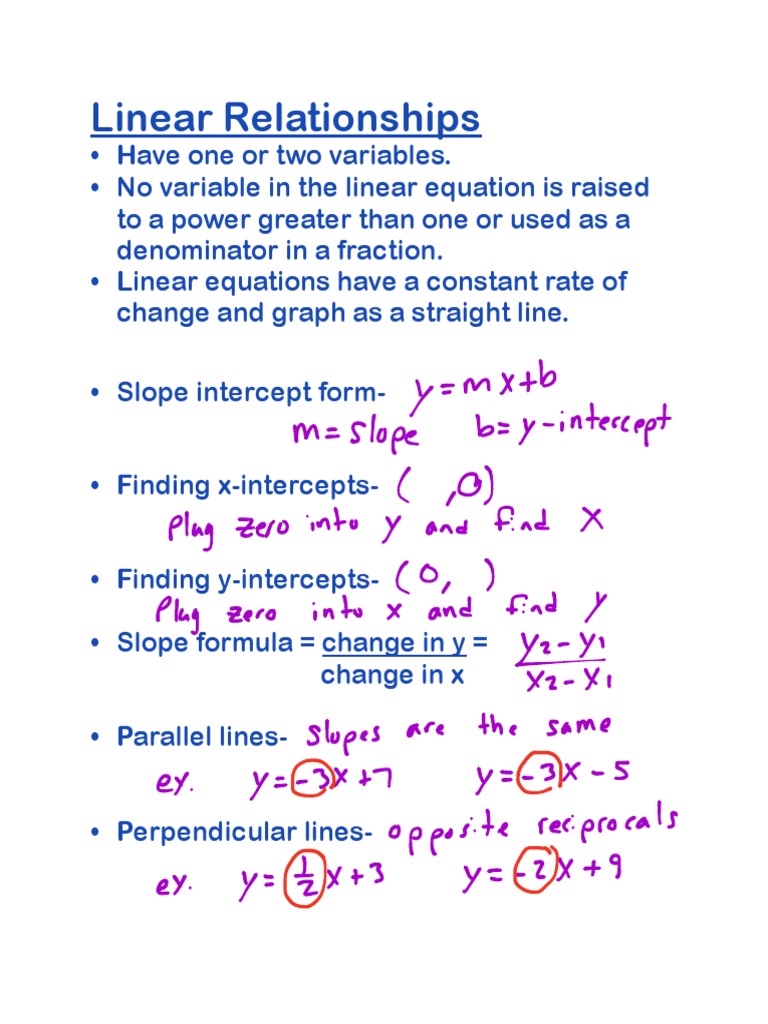 Linear Relationships
• Have one or two variables.
• No variable in the linear equation is raised
to a power greater than one or used as a
denominator in a fraction.
• Linear equations have a constant rate of
change and graph as a straight line.
• Slope intercept form- y = mx+b
m = slope b = y-intercept
• Finding x-intercepts- ( ,0)
Plug zero into y and find x
• Finding y-intercepts- (0, )
Plug zero into x and find y
• Slope formula = change in y = y2 - y1
change in x x2 - x1
• Parallel lines- slopes are the same
ex. y = -3x + 7 y = -3x - 5
• Perpendicular lines- opposite reciprocals
ex. y = 1/2 x + 3 y = -2x + 9